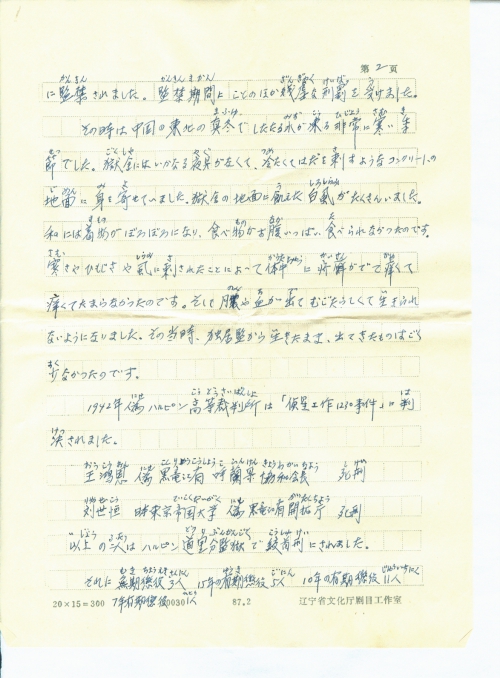 第2页
に監禁されました。監禁期間は ことのほか残虐な刑罰を受けました。
その時は中国の東北の真冬でしたたる水が凍る非常に寒い季
節でした。獄舎にはいかなる寝具が左くて、冷たくてはだを刺すようなコンクリートの
地面に身を寄せていました。獄舎の地面に飢えた白虱がたくさんいました。
私には着物がぼろぼろになり、食べ物がお腹いっぱい食べられなかったのです。
寒さやひもじさや虱に刺されたことによって体中に疥癬がでて痛くて
痒くてたまらなかったのです。そして膿や血が出てむごたらしくて生きられ
ないようになりました。その当時、独居監から生きたまま、出てきたものはごく
少なかったのです。
1942年偽ハルピン高等裁判所は「偵星工作1230事件」に判
決されました。
王鴻恩 偽黒竜江省 呼蘭県協和会長 死刑
刘世恒 時東京帝国大学 偽黒竜江省開拓庁 死刑
以上の二人はハルピン道里分監獄で絞首刑にされました。
それに無期懲役3人 15年の有期懲役5人 10年の有期懲役11人
7年有期懲役1人
20×15=300 0030 87.2 辽宁省文化厅剧目工作室